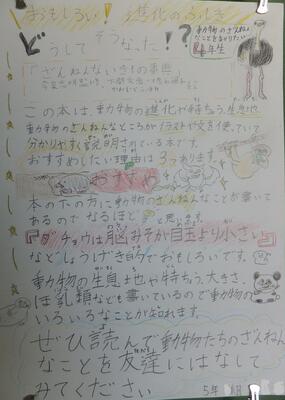 おもしろい! 進化のふしぎ
どうしてそうなった!?
動物のざんねん
なことを知りたい
4年生
「ざんねんないきもの事典」
この本は、動物の進化や特ちょう、生息地、
動物のざんねんなところがイラストや文を使っていて
分かりやすく説明されている本です。
おすすめしたい理由は3つあります。
おすすめ
本の下の方に動物のざんねんなことが書いて
あるので なるほど と思います。
『ダチョウは脳みそが目玉より小さい』
などしょうげき的でおもしろいです。
動物の生息地や特ちょう、大きさ、
ほ乳類なども書いているので動物の
いろいろなことが知れます。
ぜひ読んで動物たちのざんねん
なことを友達にはなして
みてください
5年 月